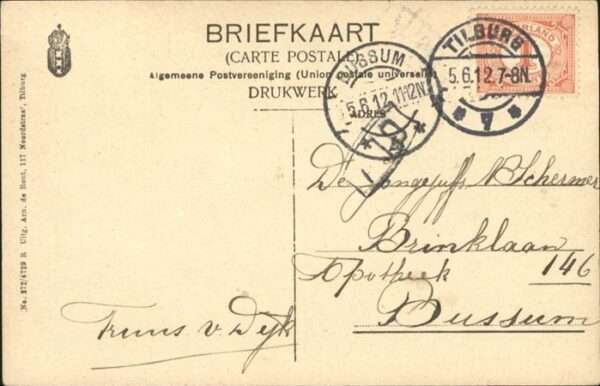 BRIEFKAART
(CARTE POSTALE)
Algemeene Postvereeniging (Union postale universelle)
DRUKWERK
ADRES
BUSSUM
5.6.12.11-12N.
TILBURG
5.6.12.7-8N.
De Jongejuffr N Schermer
Brinklaan
Apotheek 146
Bussum
Truus v. Dijk
No. 272/4729 R Uitg. Arn. de Bont, 117 Noordstraat, Tilburg